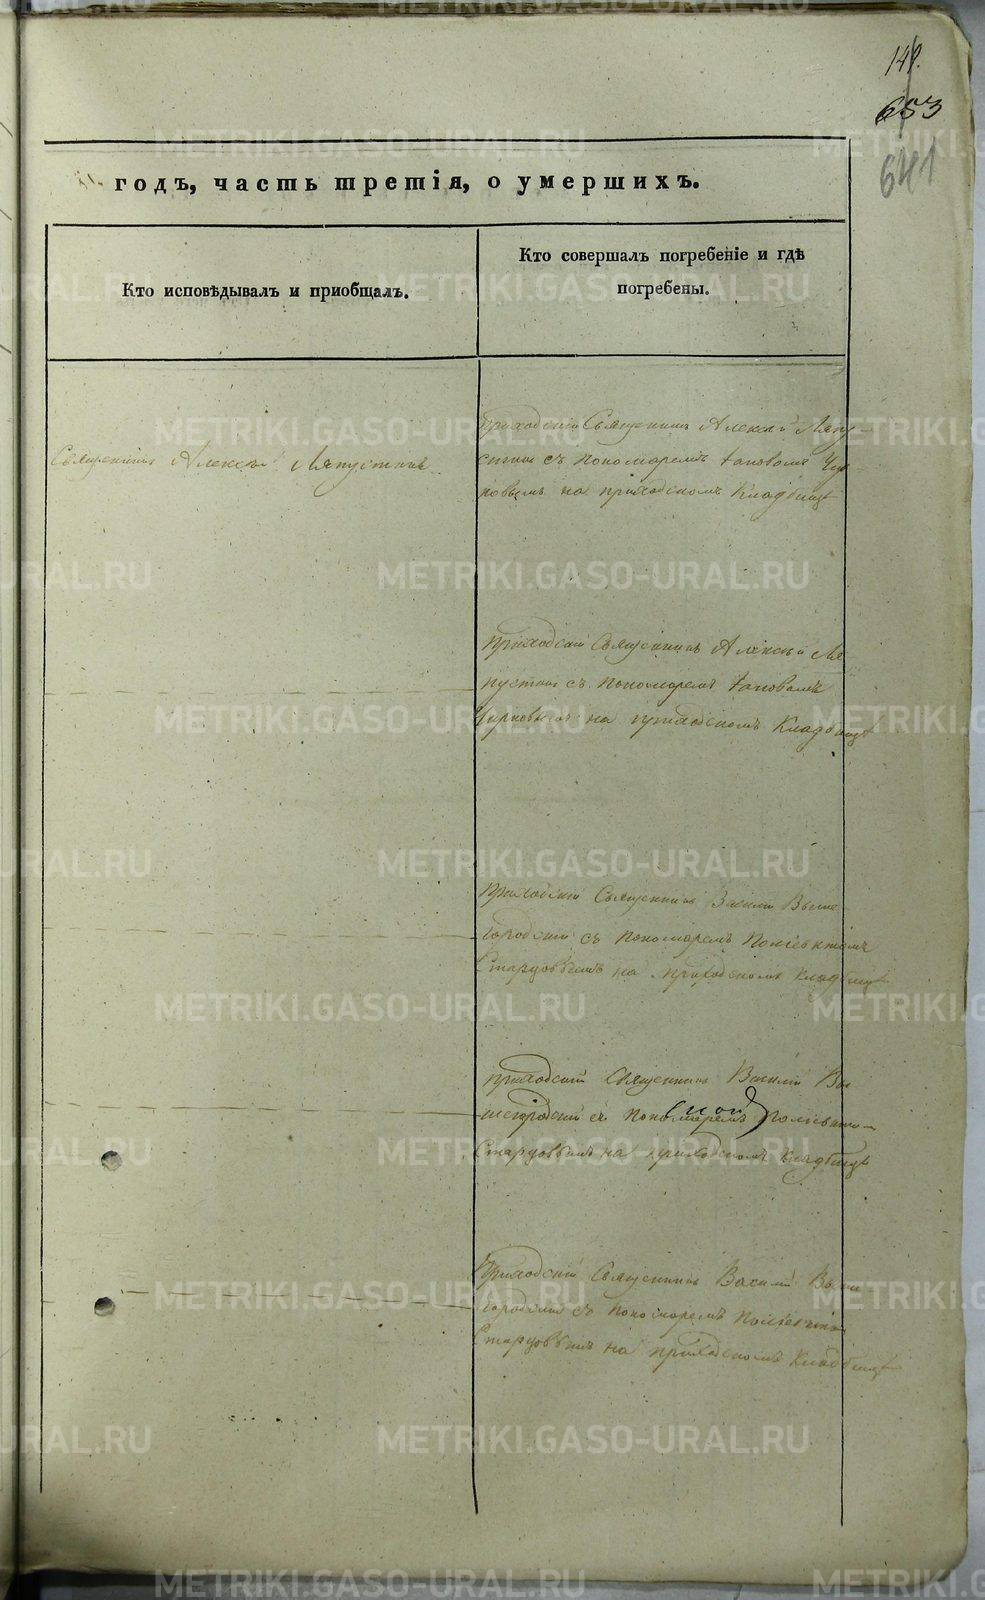 149.
653
641
годъ, часть третія, о умершихъ.
Кто исповѣдывалъ и приобщалъ.
Кто совершалъ погребеніе и гдѣ
погребены.
Священникъ Алексѣй Ляпустинъ
Приходскій Священникъ Алексѣй Ляпу-
стинъ съ пономаремъ
на приходскомъ Кладбищѣ
Приходскій Священникъ Алексѣй Ля
пустинъ съ пономаремъ
на приходскомъ Кладбищѣ
Приходскій Священникъ Василій Выше
городскій съ пономаремъ Поліевктомъ
Старцовымъ на приходскомъ кладбищѣ
приходскій Священникъ Василій Вы
шегородскій съ пономаремъ Поліевкто-
Старцовымъ на приходскомъ кладбищѣ
Приходскій Священникъ Василій Выше
городскій съ пономаремъ Поліевкто
Старцовымъ на приходскомъ Кладбищѣ
METRIKI.GASO-URAL.RU